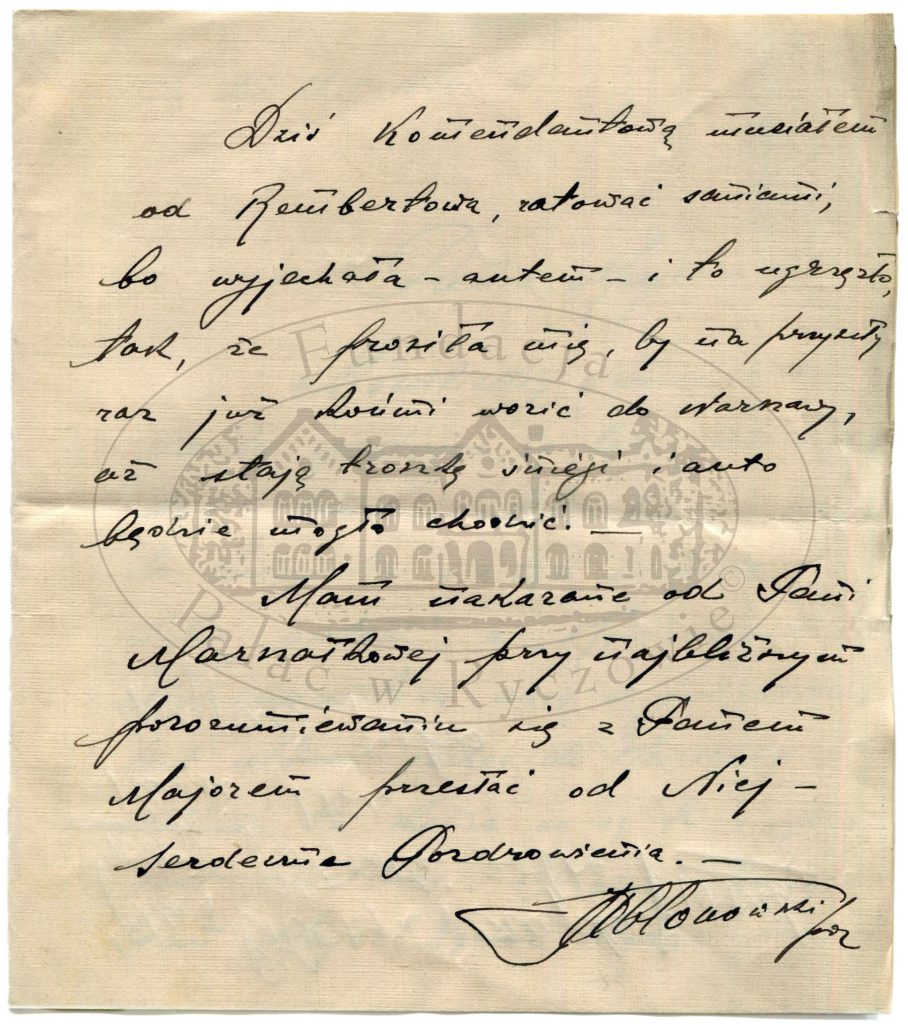 Dziś Komendantową musiałem
od Rembertowa, ratować saniami,
bo wyjechała – autem – i to ugrzęzło,
tak, że prosiła mię, by na przyszły
raz już końmi wozić do Warszawy,
aż stają troszkę śniegi i auto
będzie mogło chodzić. —
Mam nakazane od Pani
Marszałkowej przy najbliższym
porozumiewaniu się z Panem
Majorem przesłać od Niej –
serdeczne Pozdrowienia. —
Jabłonowski por
Fundacja
Pałac w Ryczowie